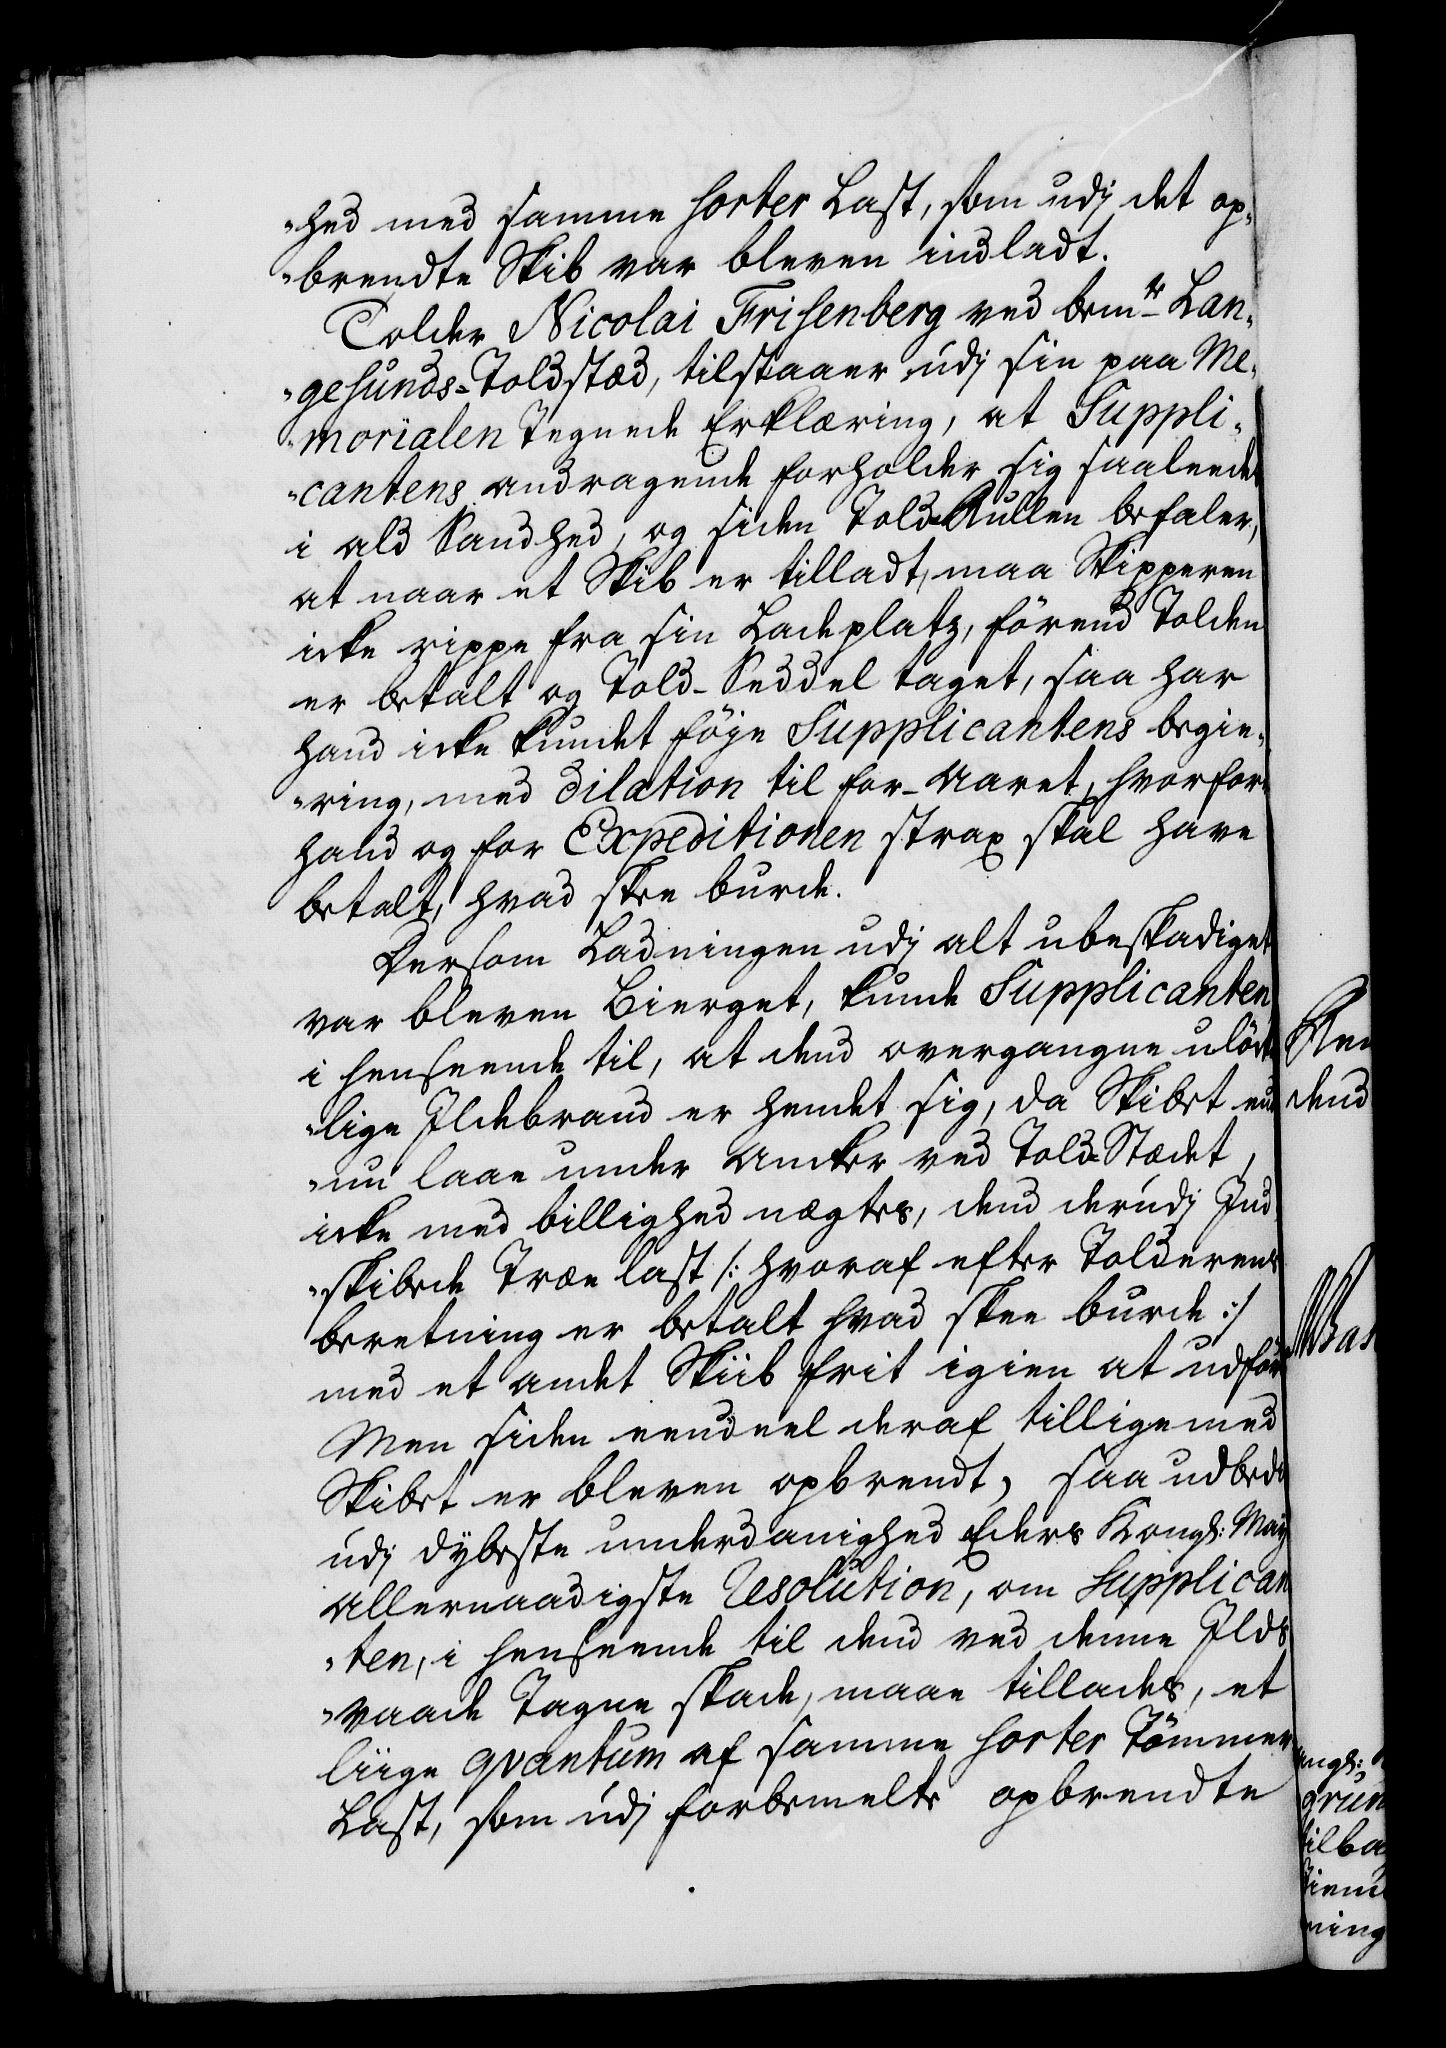 -hed med samme sorter Last, som udj det op-
-brendte Skib var bleven indladt.
Tolder Nicolai Frisenberg ved bemte Lan-
-gesunds-Toldstæd, tilstaaer udj sin paa Me-
-morialen Tegnede Erklæring, at Suppli-
-cantens andragende forholder sig saaleedes
i ald Sandhed, og siden Told-Rullen befaler,
at naar et Skib er tilladt, maa Skipperen
icke rippe fra sin Ladeplatz, förend Tolden
er betalt og Told-Seddel taget, saa har
hand icke kundet föje Supplicantens begie-
-ring, med dilation til for-Aaret, hvorfor
hand og for Expeditionen strax skal have
betalt, hvad skee burde.
Dersom Ladningen udj alt ubeskadiget
var bleven Bierget, kunde Supplicanten
i henseende til, at dend overgangne ulöck-
-lige Ildebrand er hendet sig, da Skibet end
-nu laae under Ancker ved Told-Stædet,
icke med billighed nægtes, dend derudj Ind
-skibede Træelast /: hvoraf efter Tolderens
beretning er betalt hvad skee burde :/
med et andet Skiib frit igien at udföre
Men siden eendeel deraf tilligemed
Skibet er bleven opbrendt, saa udbedes
udj dybeste underdanighed Eders Kongl: May
allernaadigste Resolution, om Supplican
-ten, i henseende til dend ved denne Ilds
-vaade Tagne skade, maae tillades, et
liige qvantum af samme sorter Tömmer
Last, som udj forbemelte opbrendte